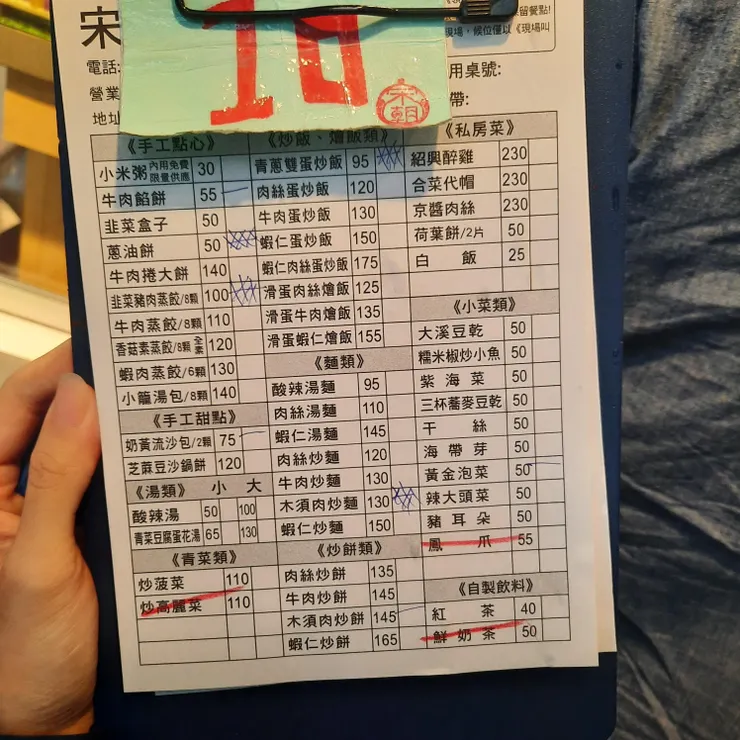 宋
19
宋朝
留餐點!
現場,候位僅以《現場叫
電話:
用桌號:
營業
帶:
地址
《手工點心》
小米粥 內用免費 限量供應 30
牛肉餡餅 55
韭菜盒子 50
蔥油餅 50
牛肉捲大餅 140
韭菜豬肉蒸餃/8顆 100
牛肉蒸餃/8顆 110
香菇素蒸餃/8顆 全素 120
蝦肉蒸餃/6顆 130
小籠湯包/8顆 140
《手工甜點》
奶黃流沙包/2顆 75
芝蔴豆沙鍋餅 120
《湯類》 小 大
酸辣湯 50 100
青菜豆腐蛋花湯 65 130
《青菜類》
炒菠菜 110
炒高麗菜 110
《炒飯、燴飯類》
青蔥雙蛋炒飯 95
肉絲蛋炒飯 120
牛肉蛋炒飯 130
蝦仁蛋炒飯 150
蝦仁肉絲蛋炒飯 175
滑蛋肉絲燴飯 125
滑蛋牛肉燴飯 135
滑蛋蝦仁燴飯 155
《麵類》
酸辣湯麵 95
肉絲湯麵 110
蝦仁湯麵 145
肉絲炒麵 120
牛肉炒麵 130
木須肉炒麵 130
蝦仁炒麵 150
《炒餅類》
肉絲炒餅 135
牛肉炒餅 145
木須肉炒餅 145
蝦仁炒餅 165
《私房菜》
紹興醉雞 230
合菜代帽 230
京醬肉絲 230
荷葉餅/2片 50
白飯 25
《小菜類》
大溪豆乾 50
糯米椒炒小魚 50
紫海菜 50
三杯蕎麥豆乾 50
干絲 50
海帶芽 50
黃金泡菜 50
辣大頭菜 50
豬耳朵 50
鳳爪 55
《自製飲料》
紅茶 40
鮮奶茶 50